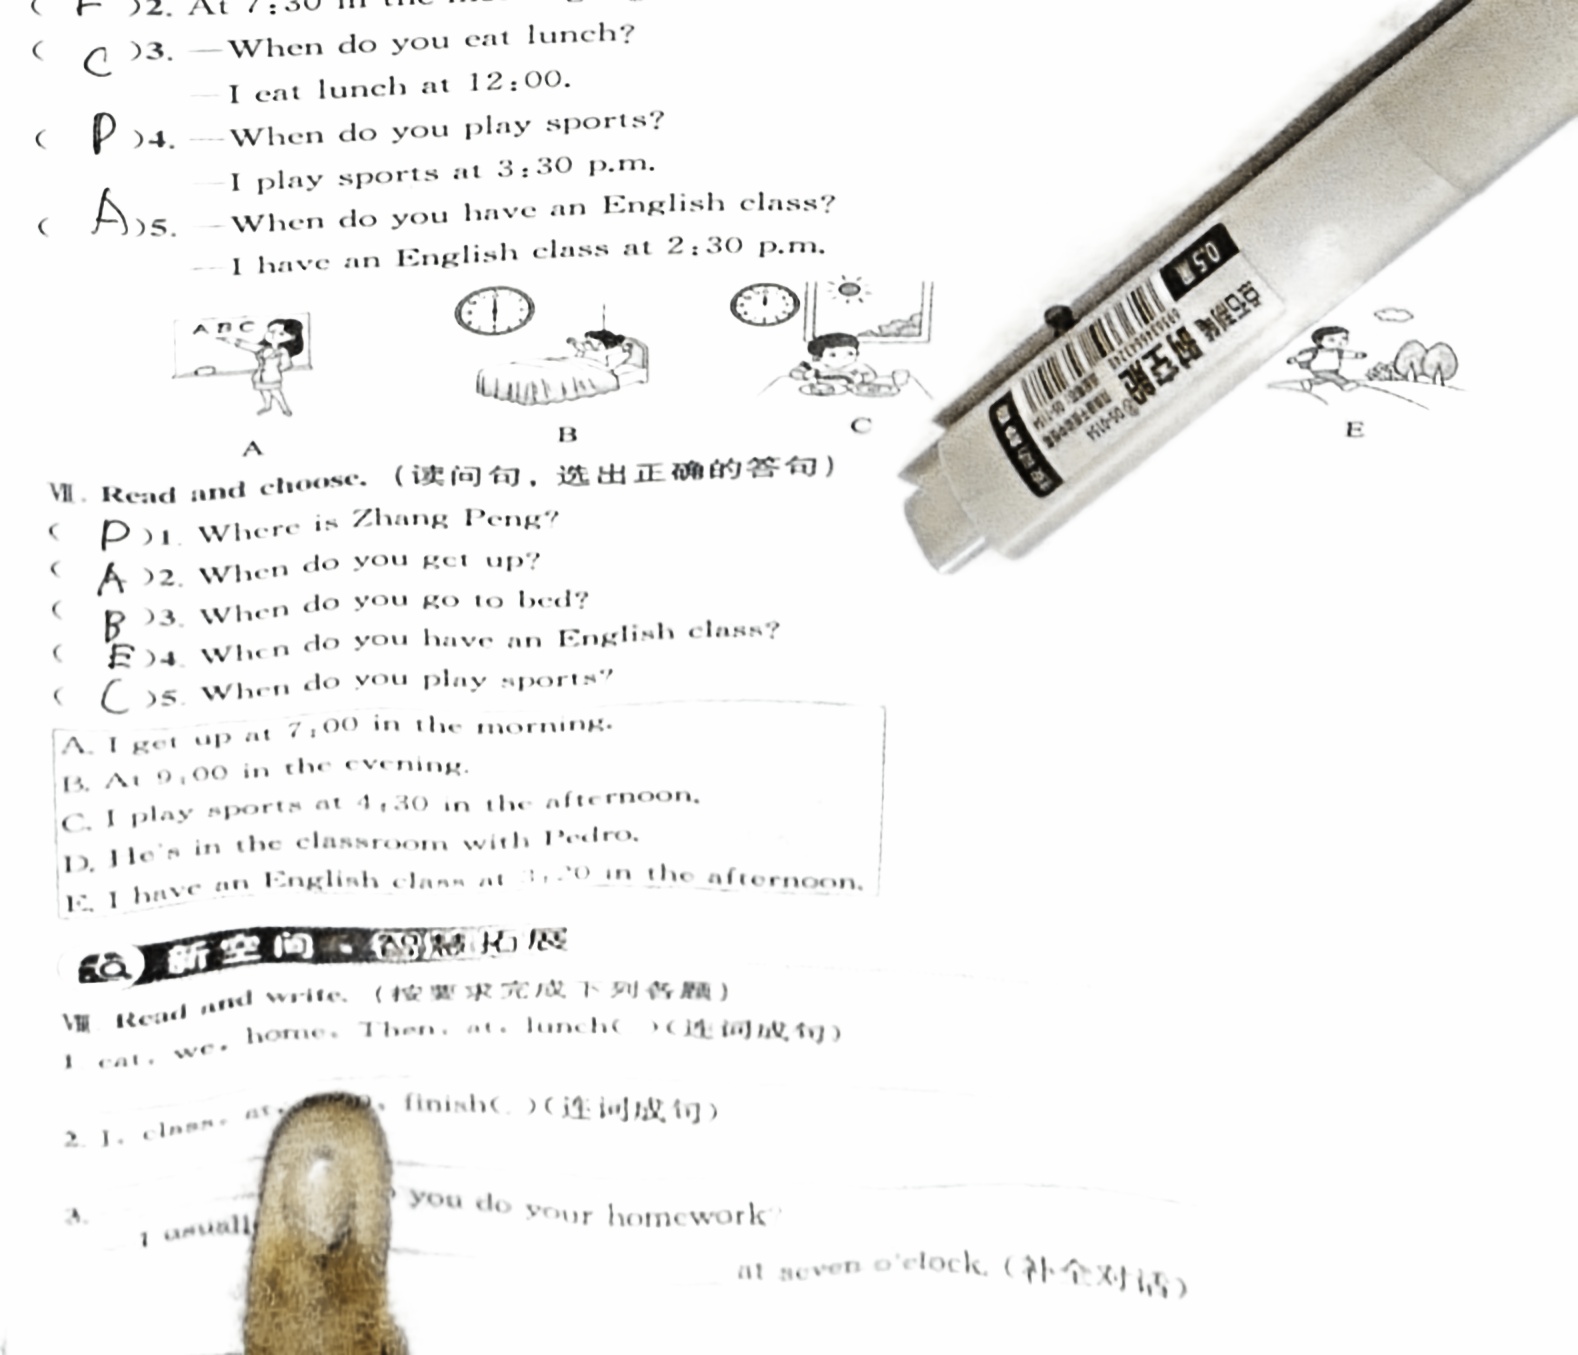 ( F )2. At 7:30 in the
( C )3. —When do you eat lunch?
—I eat lunch at 12:00.
( D )4. —When do you play sports?
—I play sports at 3:30 p.m.
( A )5. —When do you have an English class?
—I have an English class at 2:30 p.m.
A B C
A
B
C
E
0.5
05-0154
Ⅶ. Read and choose. (读问句，选出正确的答句)
( D )1. Where is Zhang Peng?
( A )2. When do you get up?
( B )3. When do you go to bed?
( E )4. When do you have an English class?
( C )5. When do you play sports?
A. I get up at 7:00 in the morning.
B. At 9:00 in the evening.
C. I play sports at 4:30 in the afternoon.
D. He's in the classroom with Pedro.
E. I have an English class at in the afternoon.
新空间·智慧拓展
Ⅷ. Read and write. (按要求完成下列各题)
1. eat, we, home, Then, at, lunch( )(连词成句)
2. I, class, at, finish(.)(连词成句)
3. you do your homework?
I at seven o'clock. (补全对话)